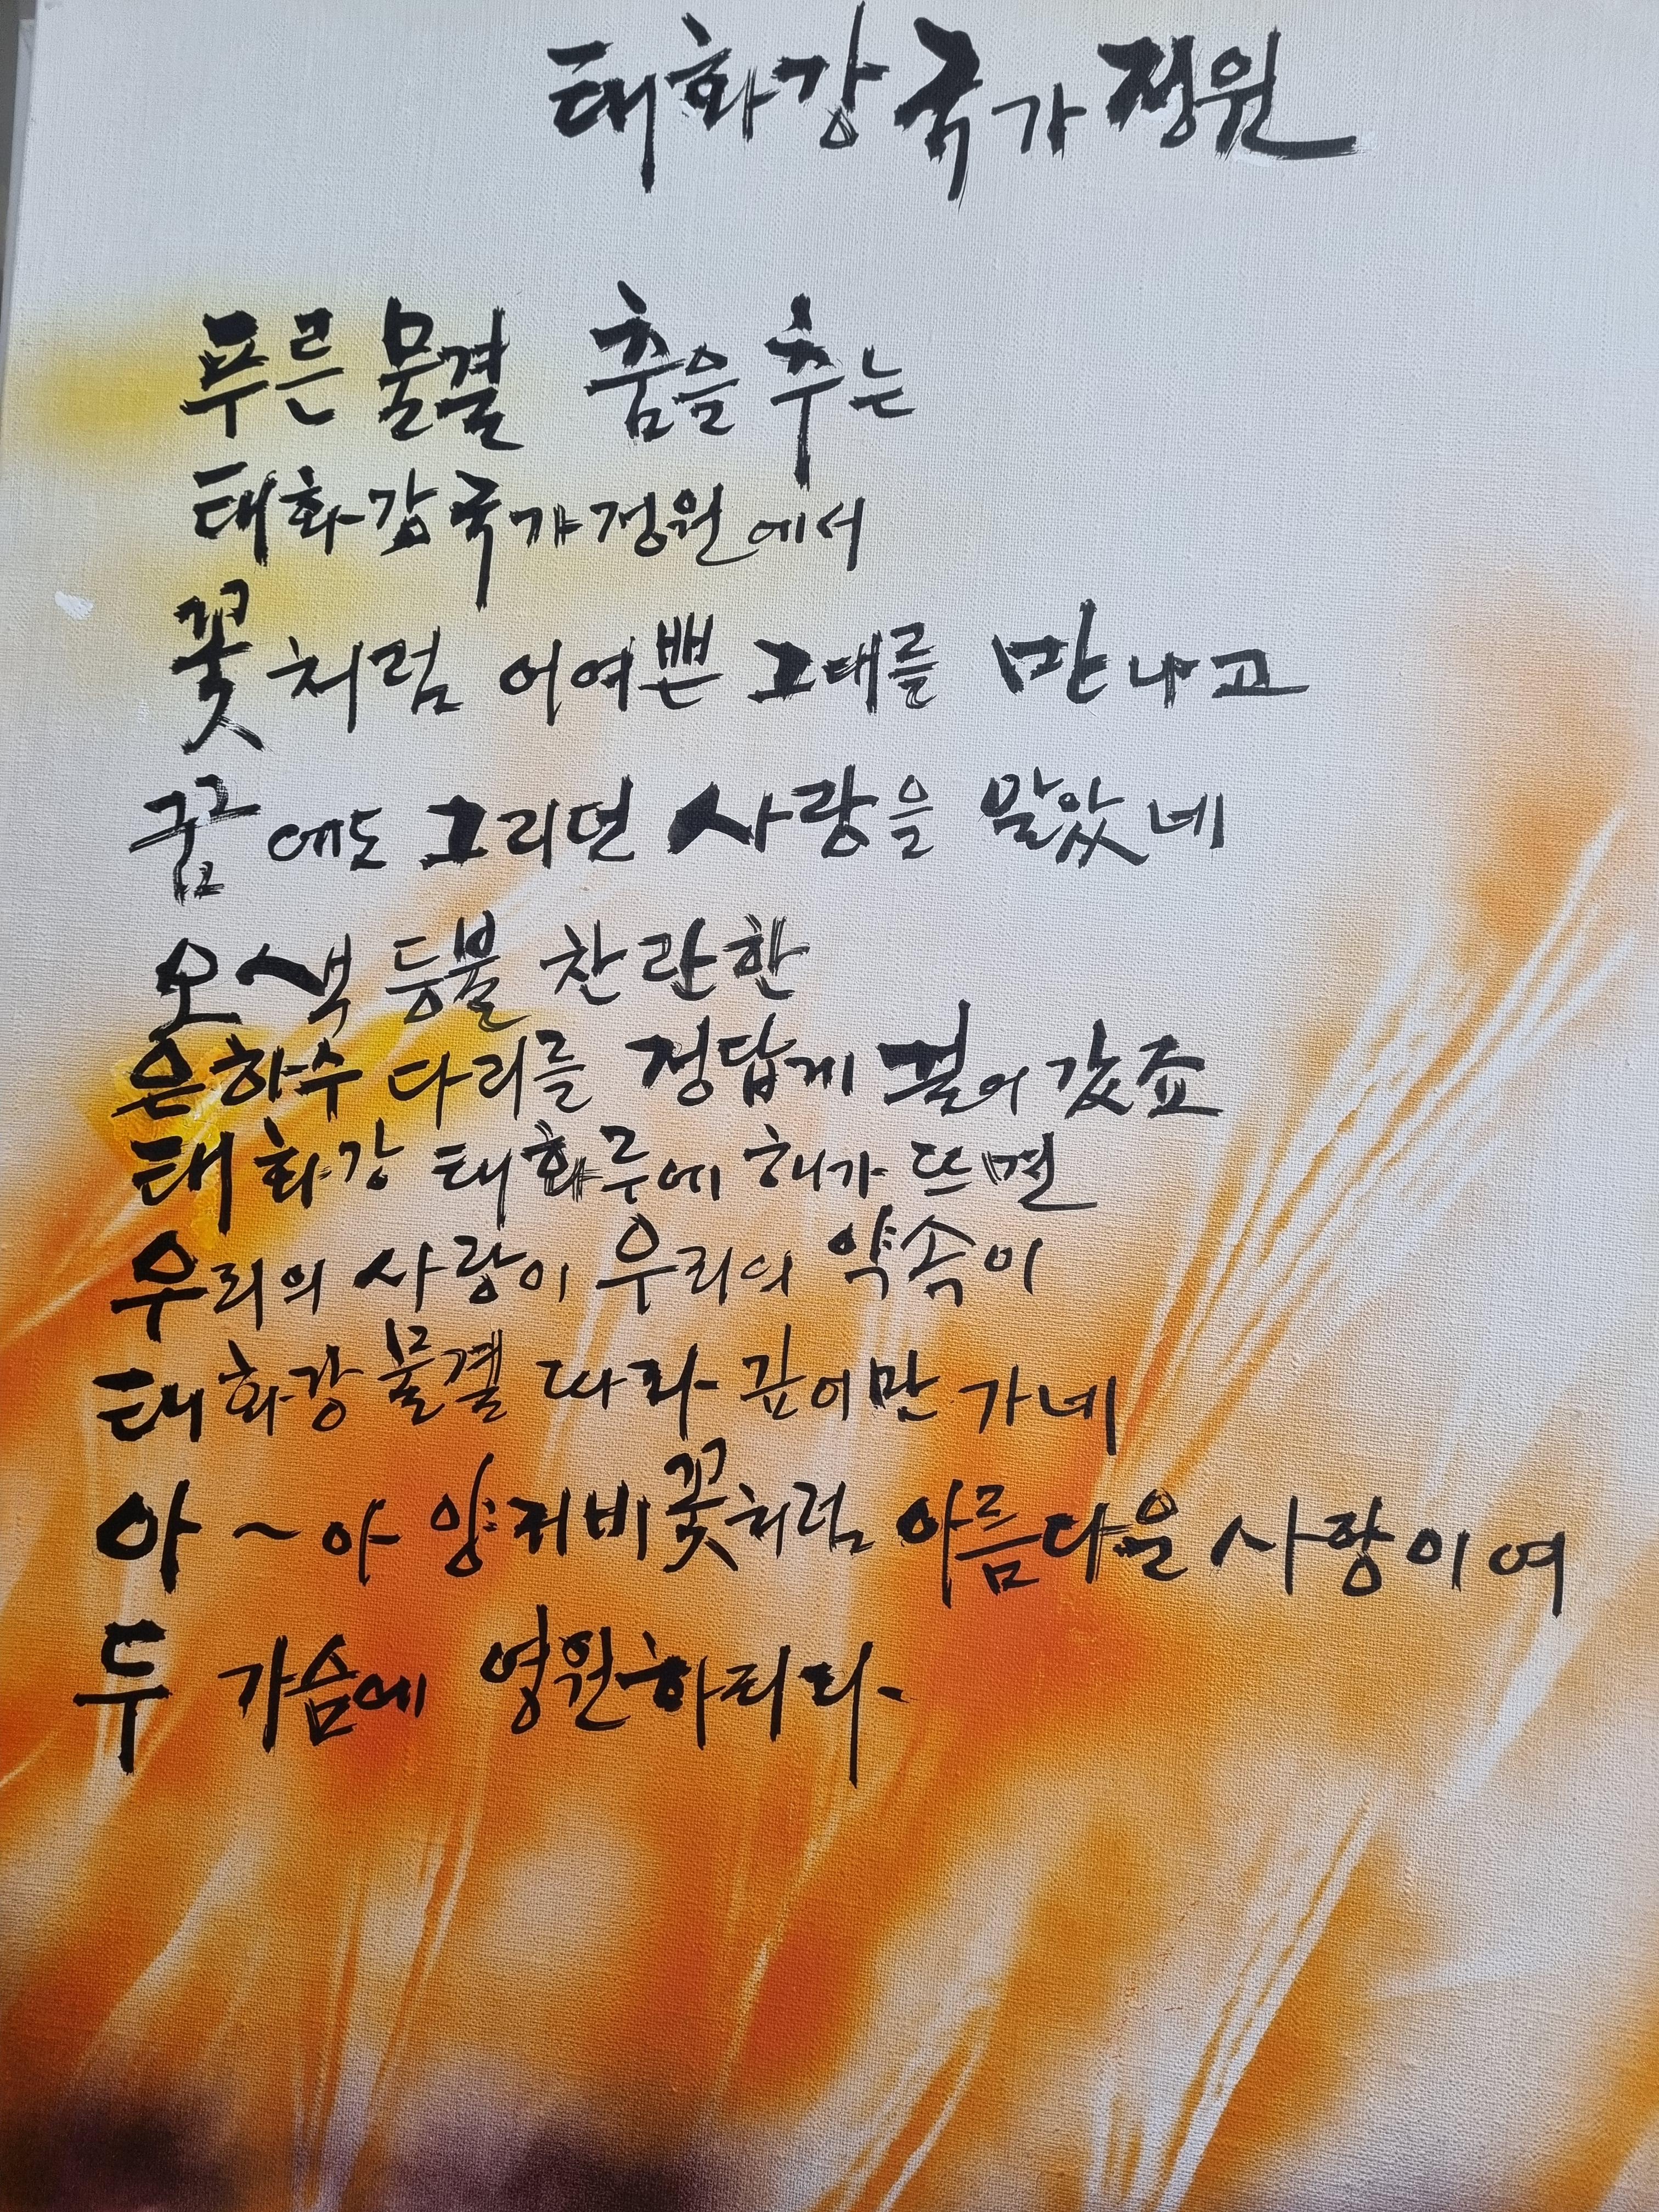 태화강 국가정원
푸른 물결 춤을 추는
태화강 국가정원에서
꽃처럼 어여쁜 그대를 만나고
꿈에도 그리던 사랑을 알았네
오색 등불 찬란한
은하수 다리를 정답게 걸어 갔죠
태화강 태화루에 해가 뜨면
우리의 사랑이 우리의 약속이
태화강 물결 따라 깊어만 가네
아~아 양귀비꽃처럼 아름다운 사랑이여
두 가슴에 영원하리라